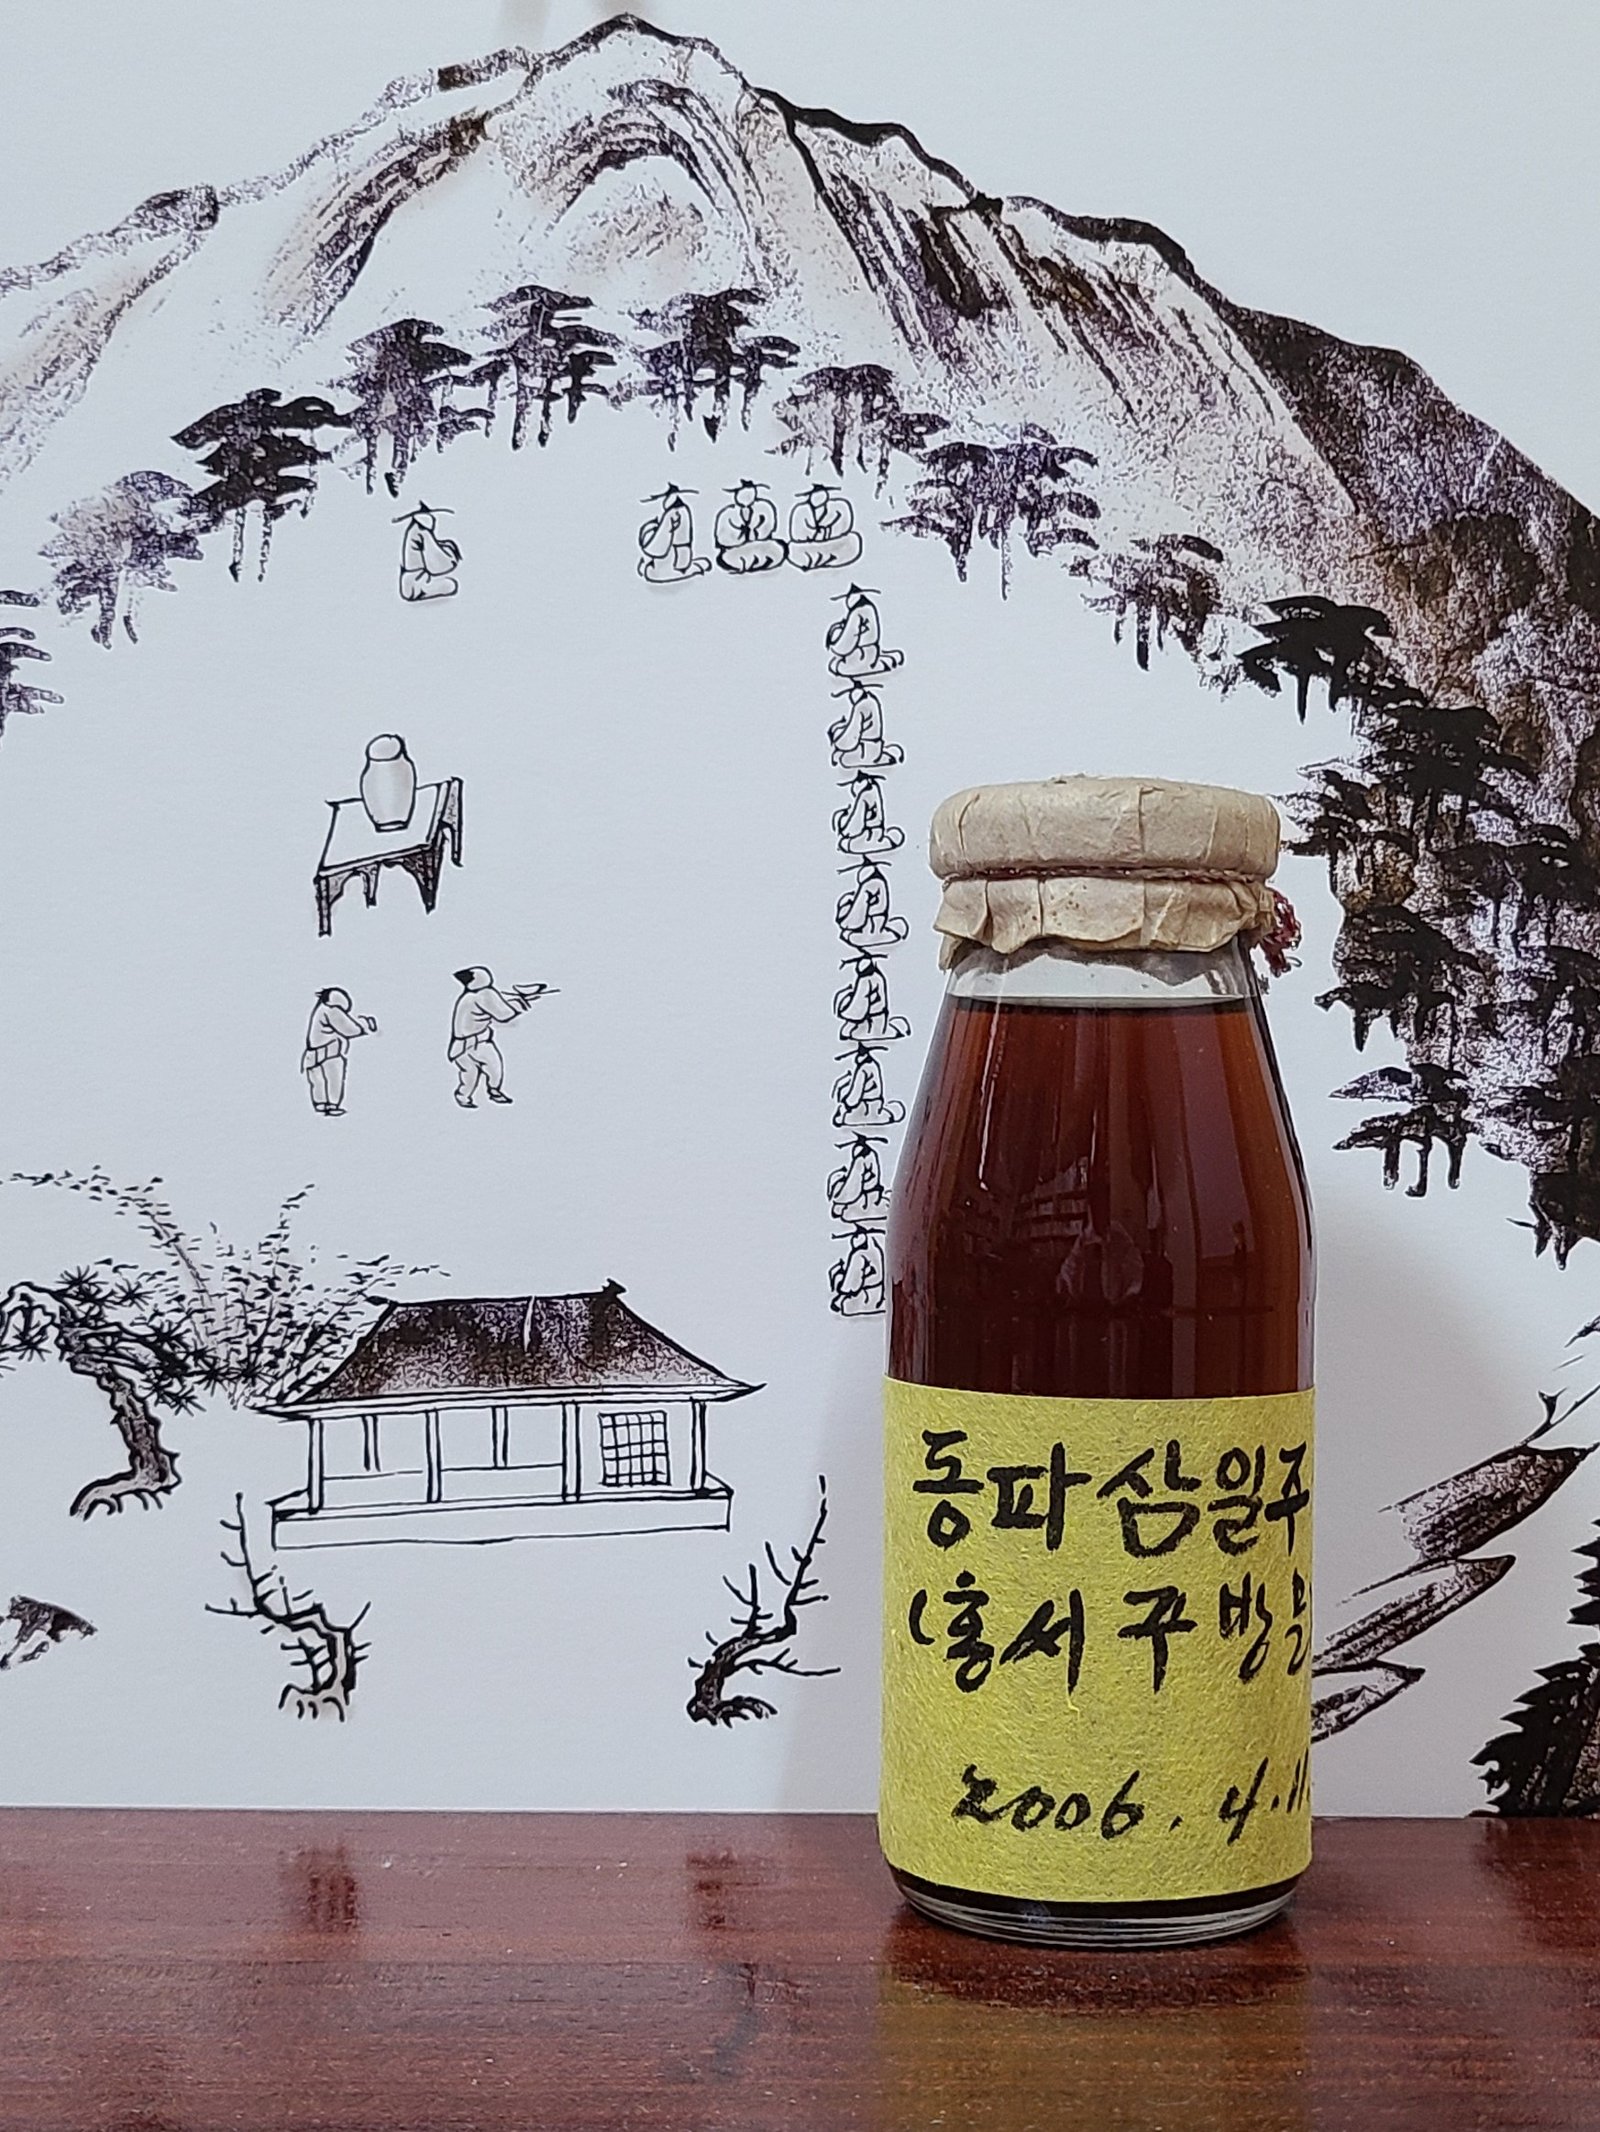 동파삼일주
(홍서 꾸 방문
2006. 4. 11.